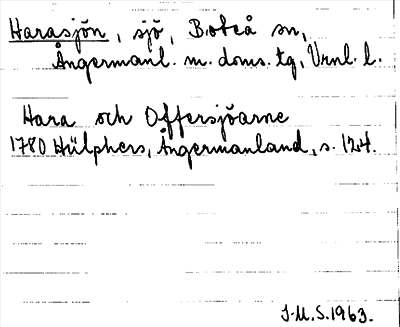 Harasjön, sjö, Boteå sn,
Ångermanl. m. doms. tg, Vrnl. l.
Hara och Offersjöarne
1780 Hülphers, Ångermanland, s. 124.
J.M.S. 1963.